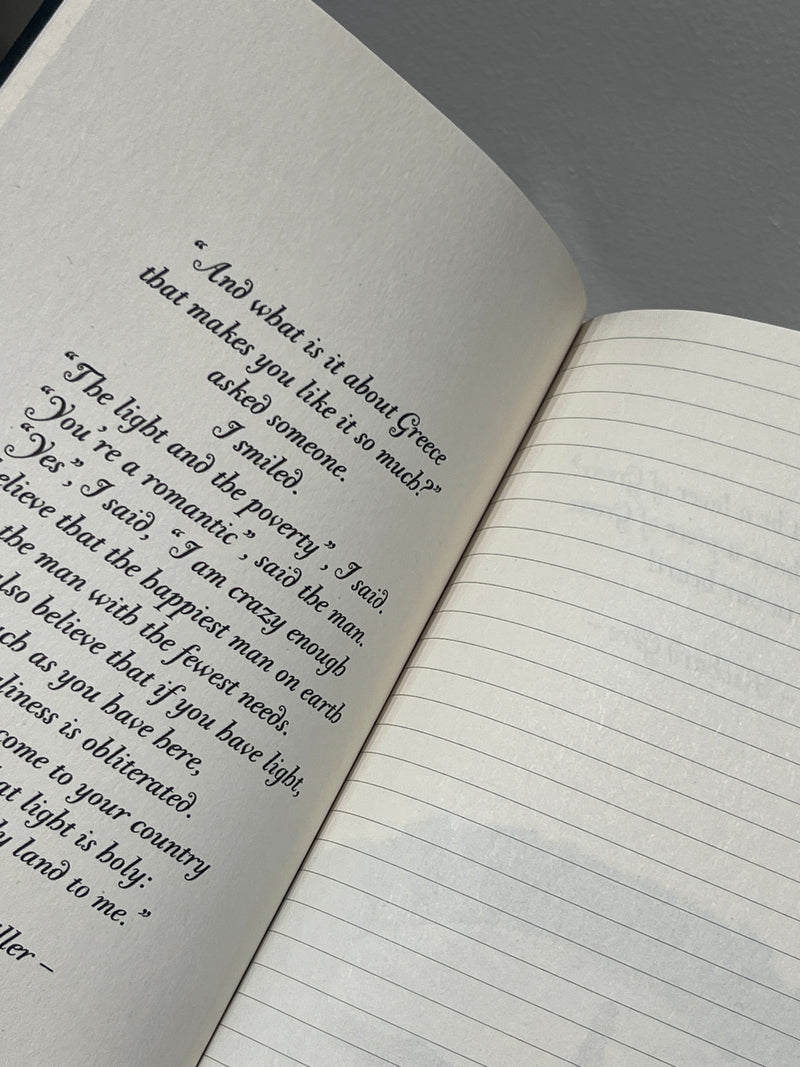 “And what is it about Greece
that makes you like it so much?”
asked someone.
I smiled.
“The light and the poverty”, I said.
“You’re a romantic”, said the man.
“Yes”, I said, “I am crazy enough
that the happiest man on earth
the man with the fewest needs.
believe that if you have light,
as you have here,
is obliterated.
come to your country
light is holy:
land to me.”
–